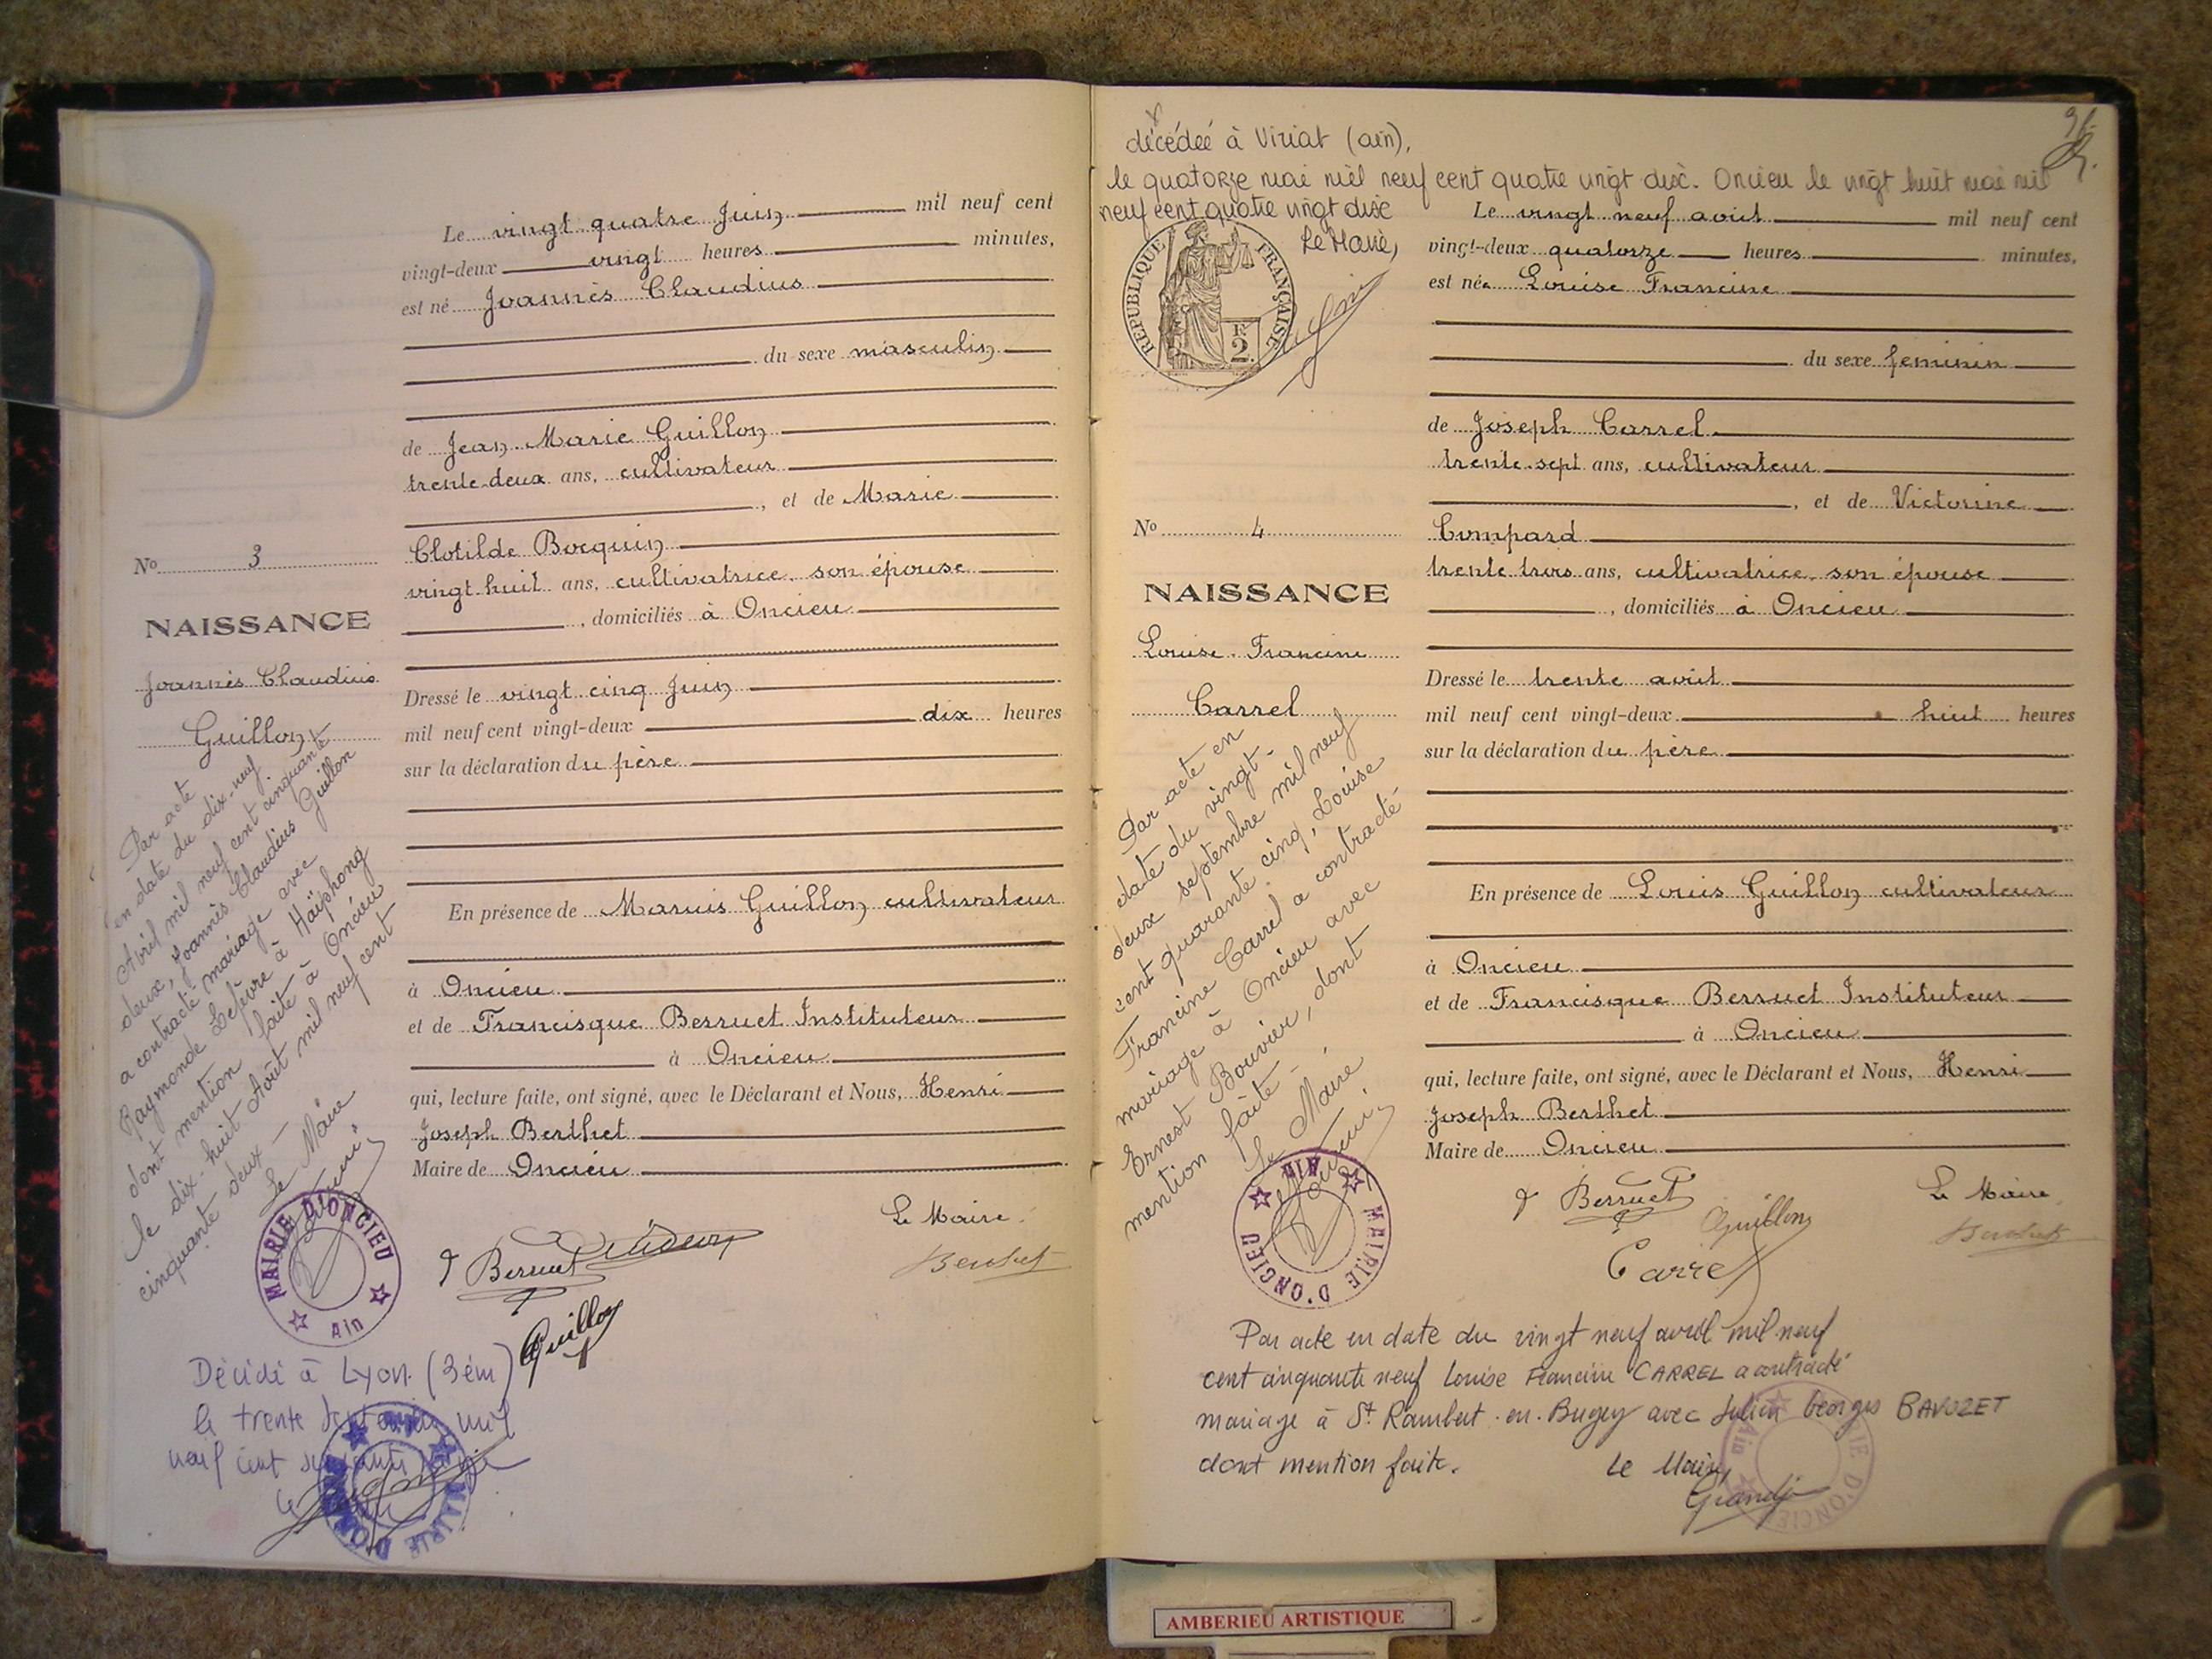 Le vingt quatre Juin mil neuf cent
vingt-deux vingt heures minutes,
est né Joannès Claudius
du sexe masculin
de Jean Marie Guillon
trente-deux ans, cultivateur
, et de Marie
Clotilde Bocquin
vingt huit ans, cultivatrice, son épouse
, domiciliés à Oncieu
Dressé le vingt cinq Juin
mil neuf cent vingt-deux dix heures
sur la déclaration du père
En présence de Marius Guillon cultivateur
à Oncieu
et de Francisque Berruet Instituteur
à Oncieu
qui, lecture faite, ont signé, avec le Déclarant et Nous, Henri
Joseph Berthet
Maire de Oncieu
Le Maire
F Berruet
Guillon
Berthet
No 3
NAISSANCE
Joannès Claudius
Guillon
Par acte
en date du dix-neuf
Avril mil neuf cent cinquante
deux, Joannès Claudius Guillon
a contracté mariage avec
Raymonde Lefèvre à Haïphong
dont mention faite à Oncieu
le dix-huit Août mil neuf cent
cinquante deux -
Le Maire
MAIRIE D'ONCIEU
Ain
Décédé à Lyon (3ém)
le trente mil
neuf cent
MAIRIE D'ONCIEU
décédeé à Viriat (ain),
le quatorze mai mil neuf cent quatre vingt dix. Oncieu le vingt huit mai mil
neuf cent quatre vingt dix
Le Maire,
RÉPUBLIQUE FRANÇAISE
F.
2.
Le vingt neuf août mil neuf cent
vingt-deux quatorze heures minutes,
est née Louise Francine
du sexe feminin
de Joseph Carrel
trente-sept ans, cultivateur
, et de Victorine
Compard
trente trois ans, cultivatrice, son épouse
, domiciliés à Oncieu
Dressé le trente août
mil neuf cent vingt-deux huit heures
sur la déclaration du père
En présence de Louis Guillon cultivateur
à Oncieu
et de Francisque Berruet Instituteur
à Oncieu
qui, lecture faite, ont signé, avec le Déclarant et Nous, Henri
Joseph Berthet
Maire de Oncieu
Le Maire
F Berruet
Guillon
Carrel
Berthet
No 4
NAISSANCE
Louise Francine
Carrel
Par acte en
date du vingt-
deux septembre mil neuf
cent quarante cinq, Louise
Francine Carrel a contracté
mariage à Oncieu avec
Ernest Bouvier, dont
mention faite -
Le Maire
MAIRIE D'ONCIEU
AIN
Par acte en date du vingt neuf avril mil neuf
cent cinquante neuf Louise Francine CARREL a contracté
mariage à St Rambert-en-Bugey avec Julien Georges BAVOZET
dont mention faite. Le Maire,
MAIRIE D'ONCIEU
Ain
AMBERIEU ARTISTIQUE